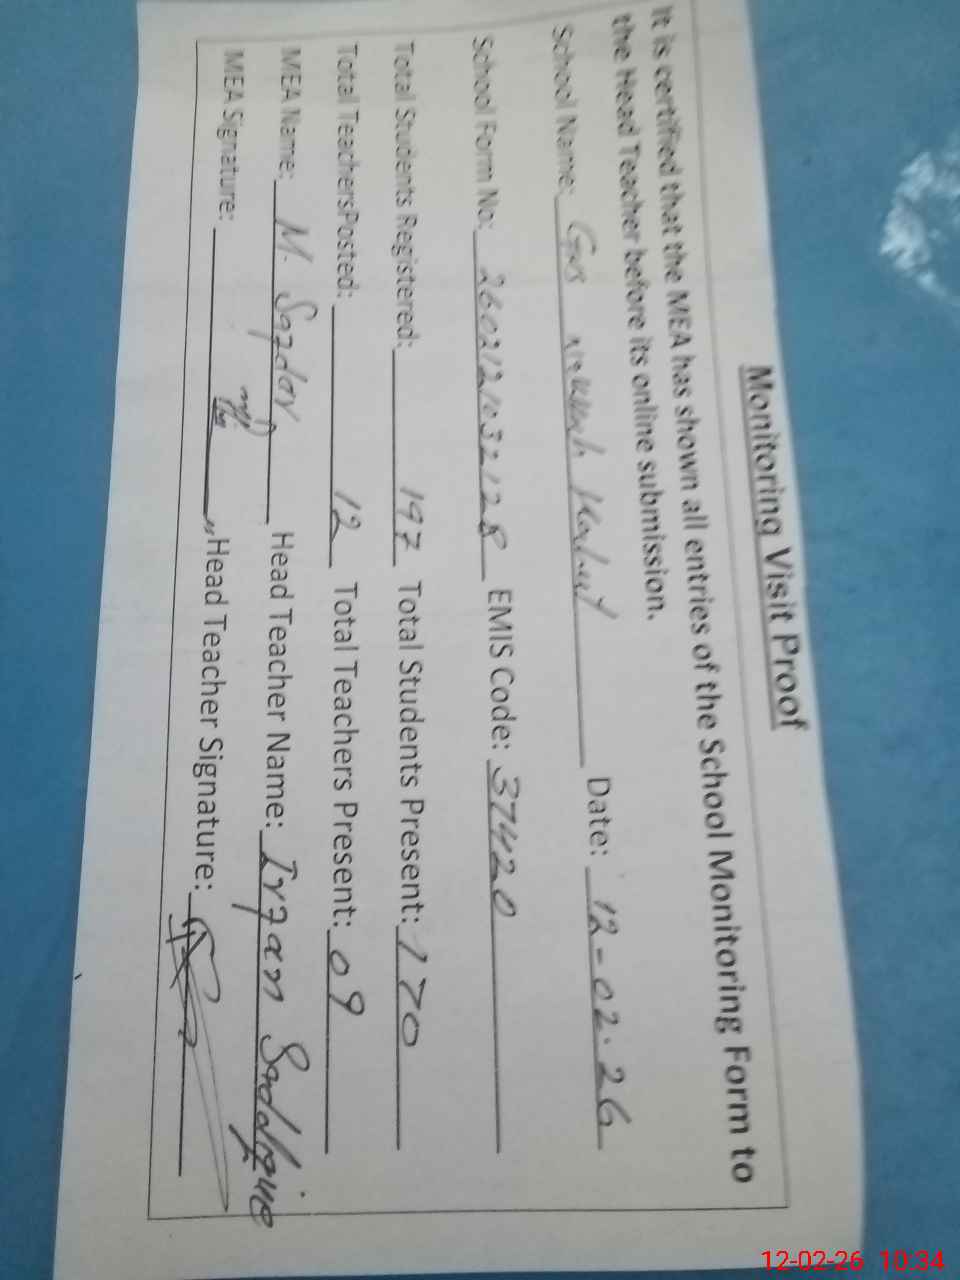 Monitoring Visit Proof
It is certified that the MEA has shown all entries of the School Monitoring Form to
the Head Teacher before its online submission.
School Name: Date: 12-02-26
School Form No: 2602121032128 EMIS Code: 37420
Total Students Registered: 197 Total Students Present: 170
Total TeachersPosted: 12 Total Teachers Present: 09
MEA Name: M. Safdar Head Teacher Name: Irfan
MEA Signature: Head Teacher Signature:
12-02-26 10:34